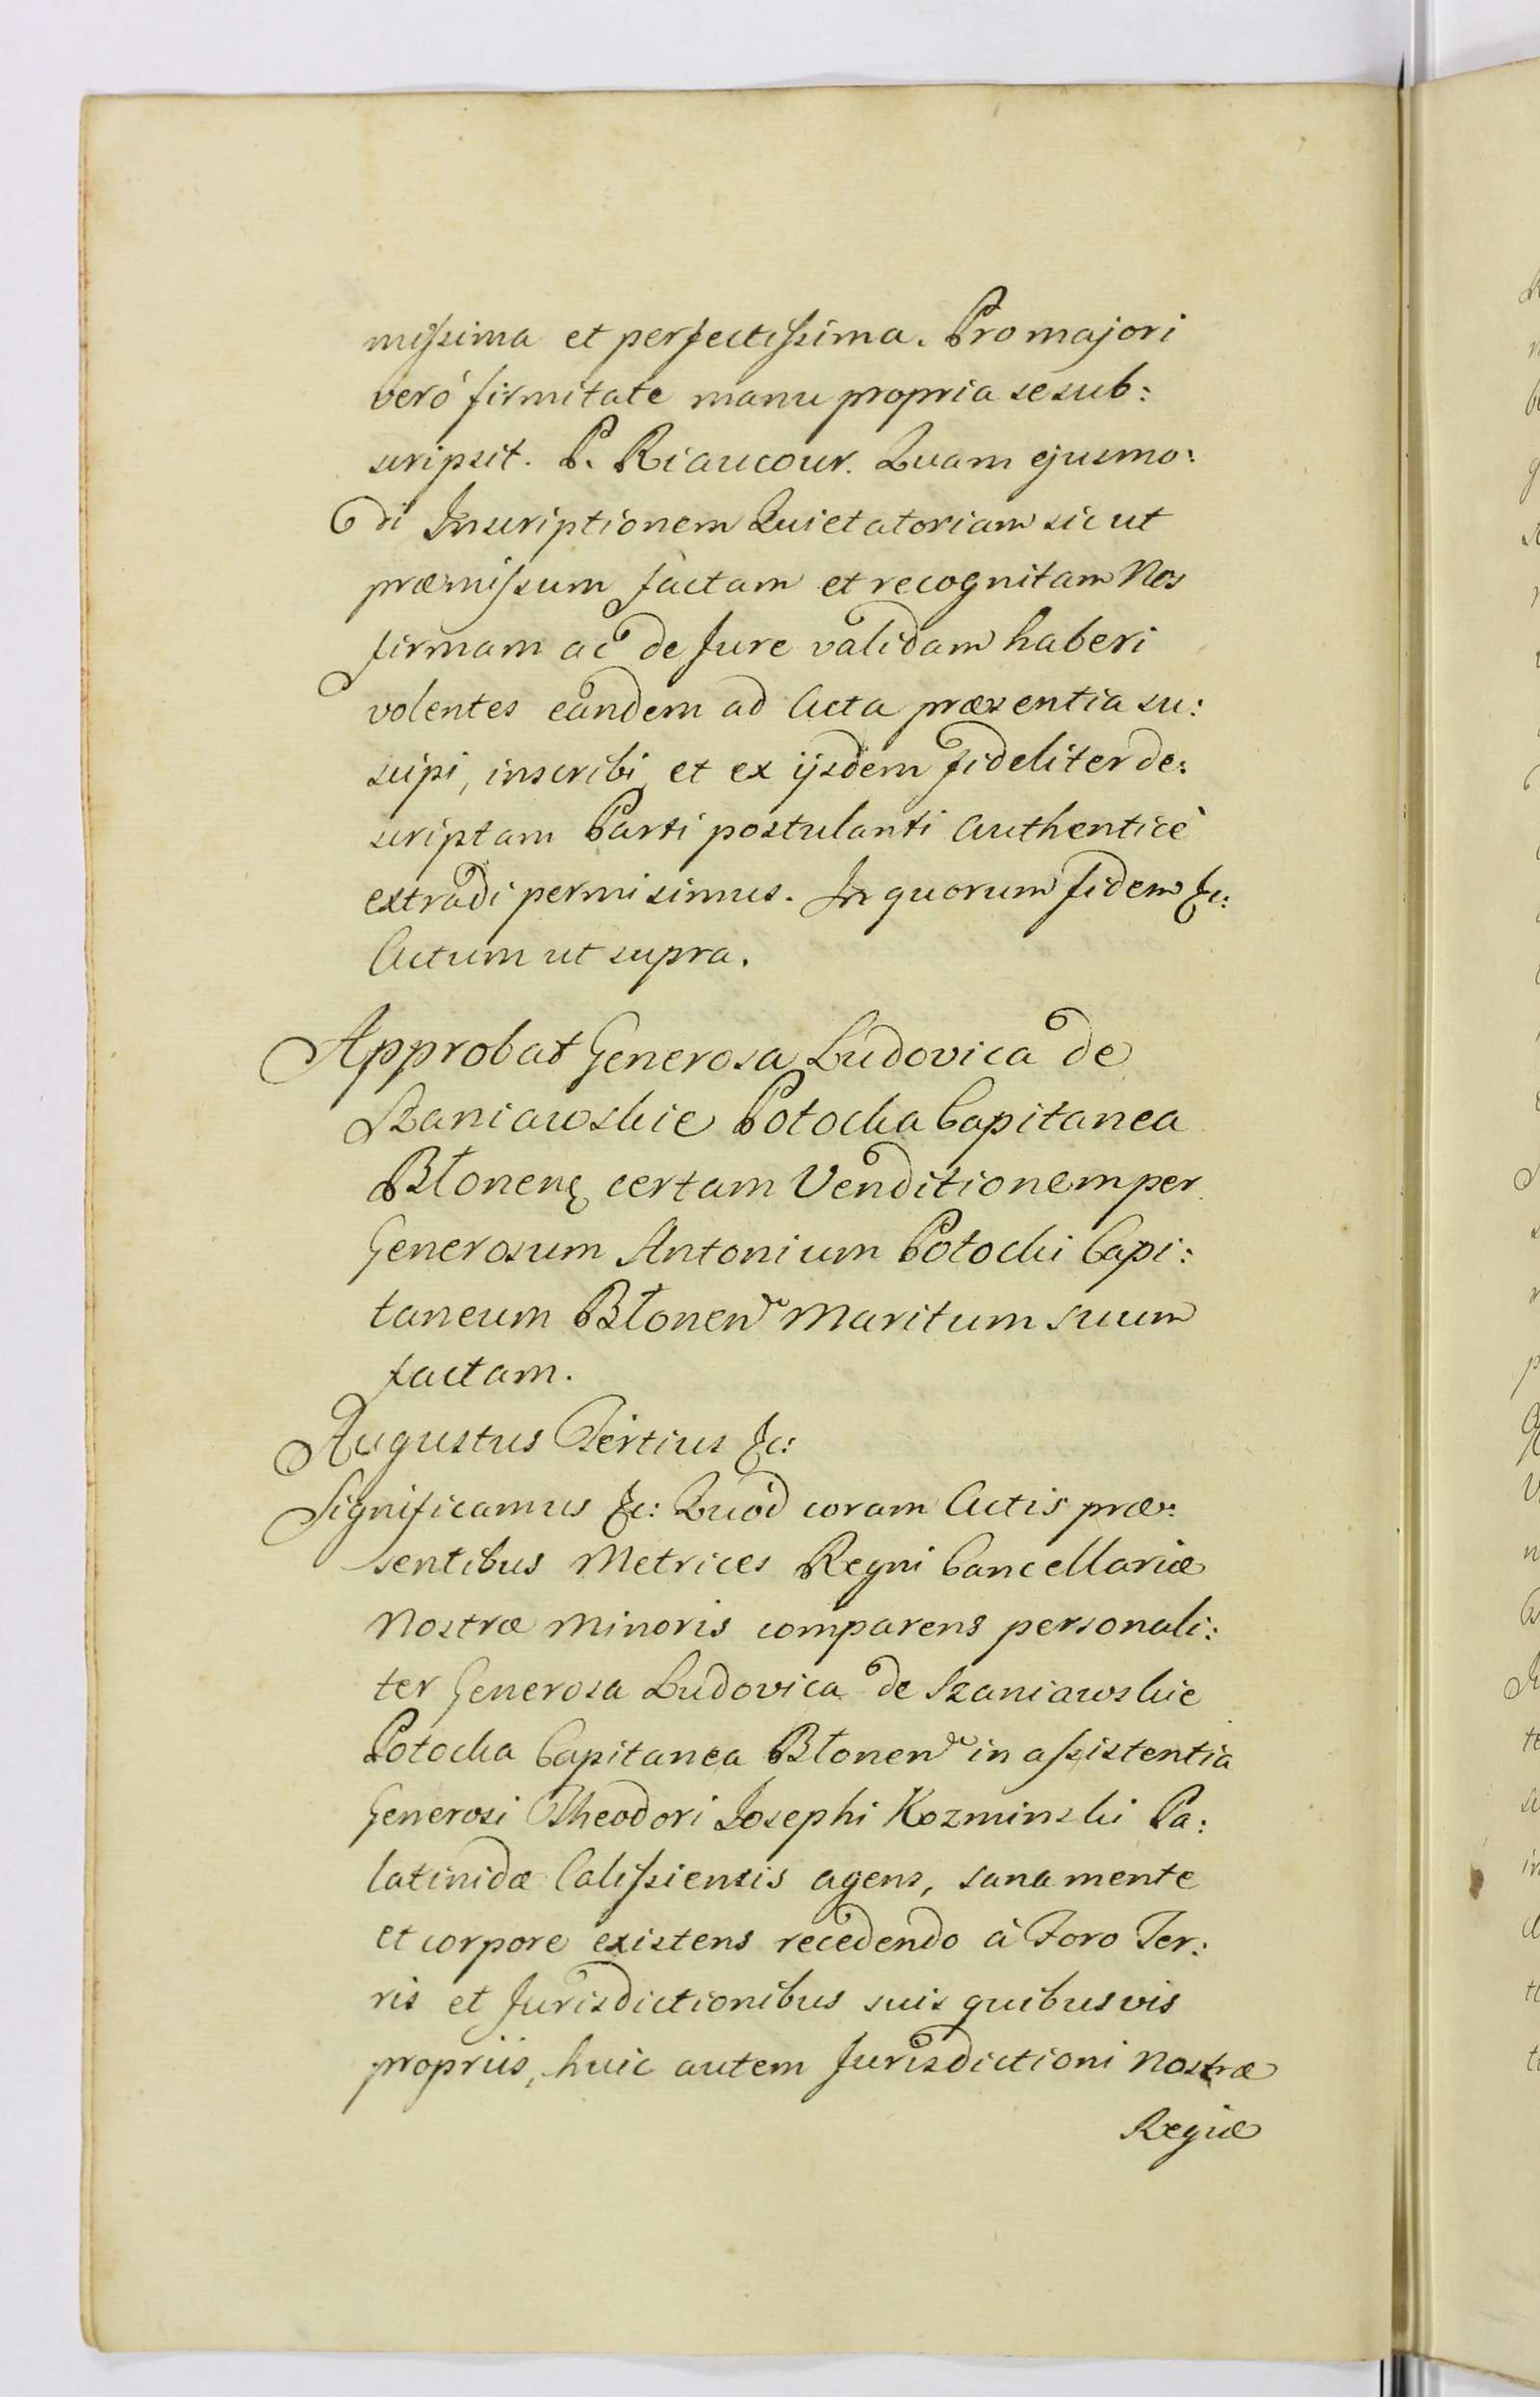 missima et perfectissima. Pro majori
verò firmitate manu propria se sub:
scripsit. P. Riaucour. Quam ejusmo:
di Inscriptionem Quietatoriam sicut
præmissum factam et recognitam Nos
firmam ac de Jure validam haberi
volentes eandem ad Acta præsentia su:
scipi, inscribi, et ex ijsdem fideliter de:
scriptam Parti postulanti Authenticè
extradi permisimus. In quorum fidem &c:
Actum ut supra.
Approbat Generosa Ludovica de
Szaniawskie Potocka Capitanea
Błonenę certam Venditionem per
Generosum Antonium Potocki Capi:
taneum Błonen Maritum suum
factam.
Augustus Tertius &c:
Significamus &c: Quod coram Actis præ:
sentibus Metrices Regni Cancellariæ
Nostræ Minoris comparens personali:
ter Generosa Ludovica de Szaniawskie
Potocka Capitanea Błonen in assistentia
Generosi Theodori Josephi Kozminski Pa:
latinidæ Calissiensis agens, sana mente
et corpore existens recedendo à Foro Ter:
ris et Jurisdictionibus suis quibusvis
propriis, huic autem Jurisdictioni Nostræ
Regiæ